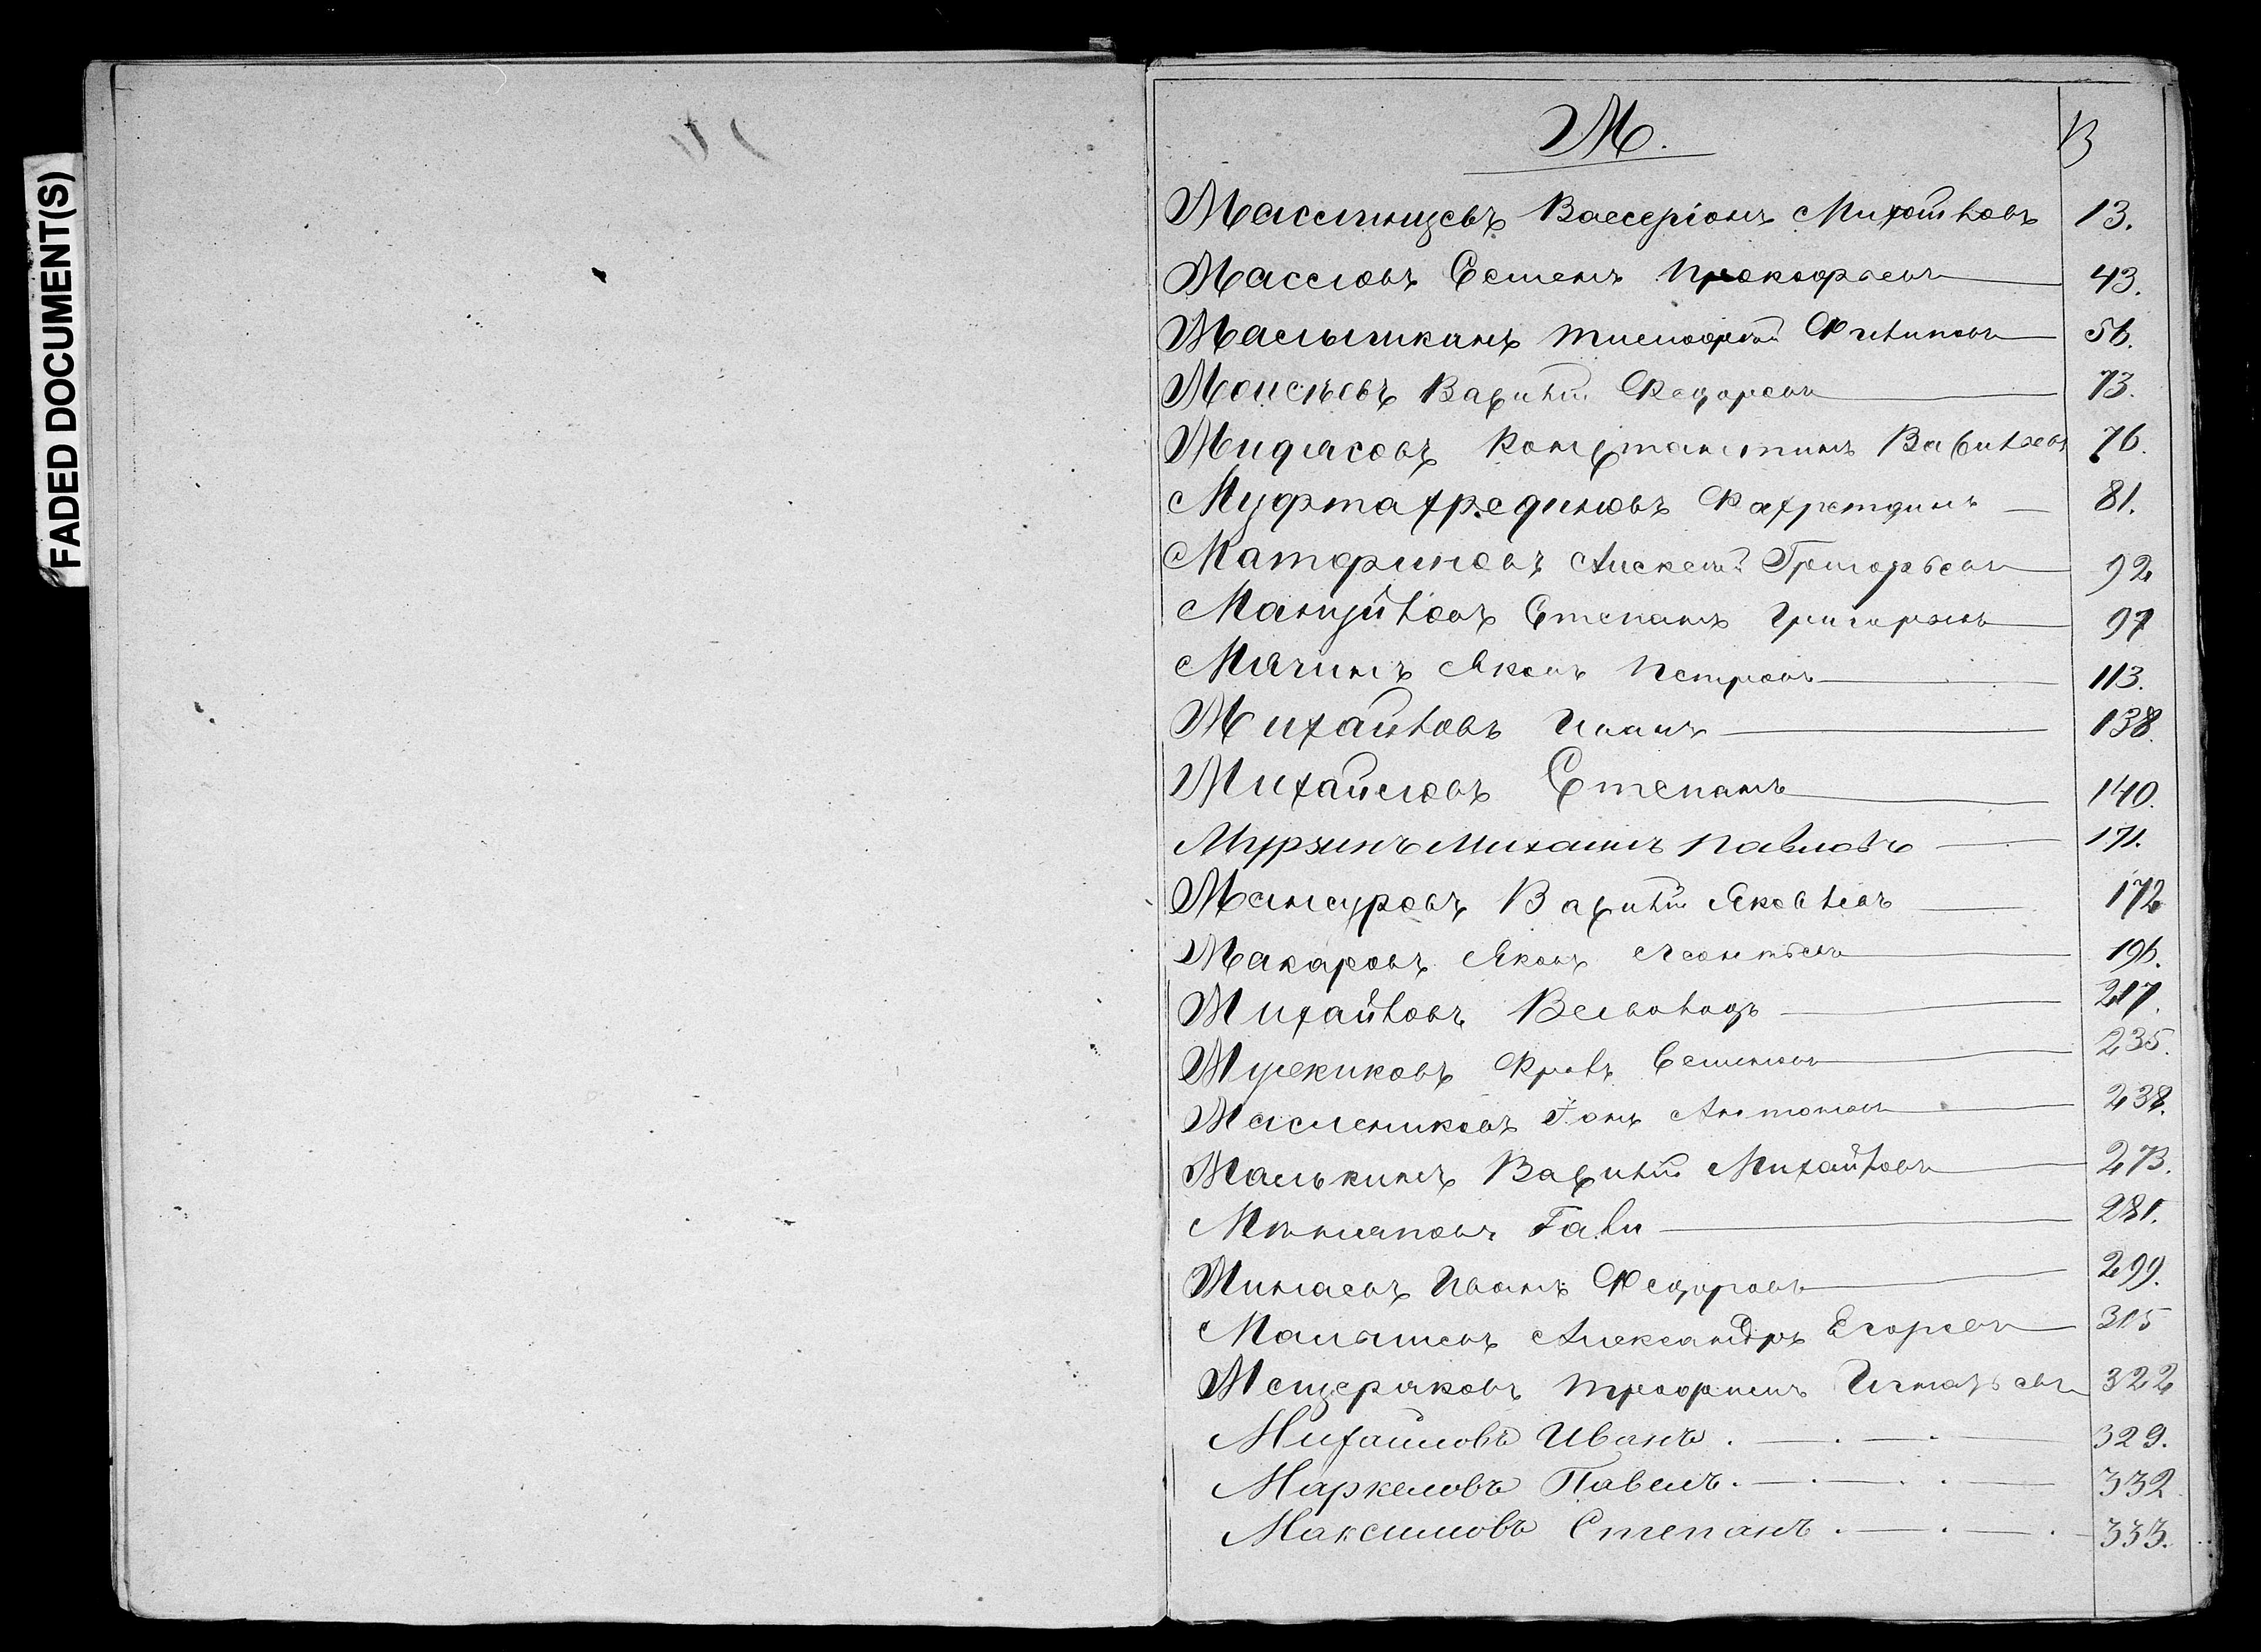 FADED DOCUMENT(S)
М.
Валерiонъ Михайловъ 13.
Масловъ Семенъ Прокофьевъ 43.
Тимофей Филиповъ 56.
Моисѣевъ Василiй Федоровъ 73.
Мидяковъ Константинъ Васильевъ 76.
Муфтахрединовъ Фахретдинъ 81.
Матфриновъ Алексей Григорьевъ 92
Мануйловъ Степанъ Григорьевъ 97
Мачинъ Яковъ Петровъ 113.
Михайловъ Иванъ 138.
Михайловъ Степанъ 140.
Мурзинъ Михаилъ Павловъ 171.
Мансуровъ Василiй Яковлевъ 172
Макаровъ Яковъ Леонтьевъ 196.
Михайловъ Всеволодъ 217.
Фролъ Семеновъ 235.
Маслениковъ Iонъ Антоновъ 238.
Малькинъ Василiй Михайловъ 273.
Гали 281.
Минаевъ Иванъ Федоровъ 299.
Малышевъ Александръ Егоровъ 315
Мещеряковъ Трофимъ Игнатьевъ 322
Михайловъ Иванъ 329.
Маркеловъ Павелъ 332
Максимовъ Степанъ 333.